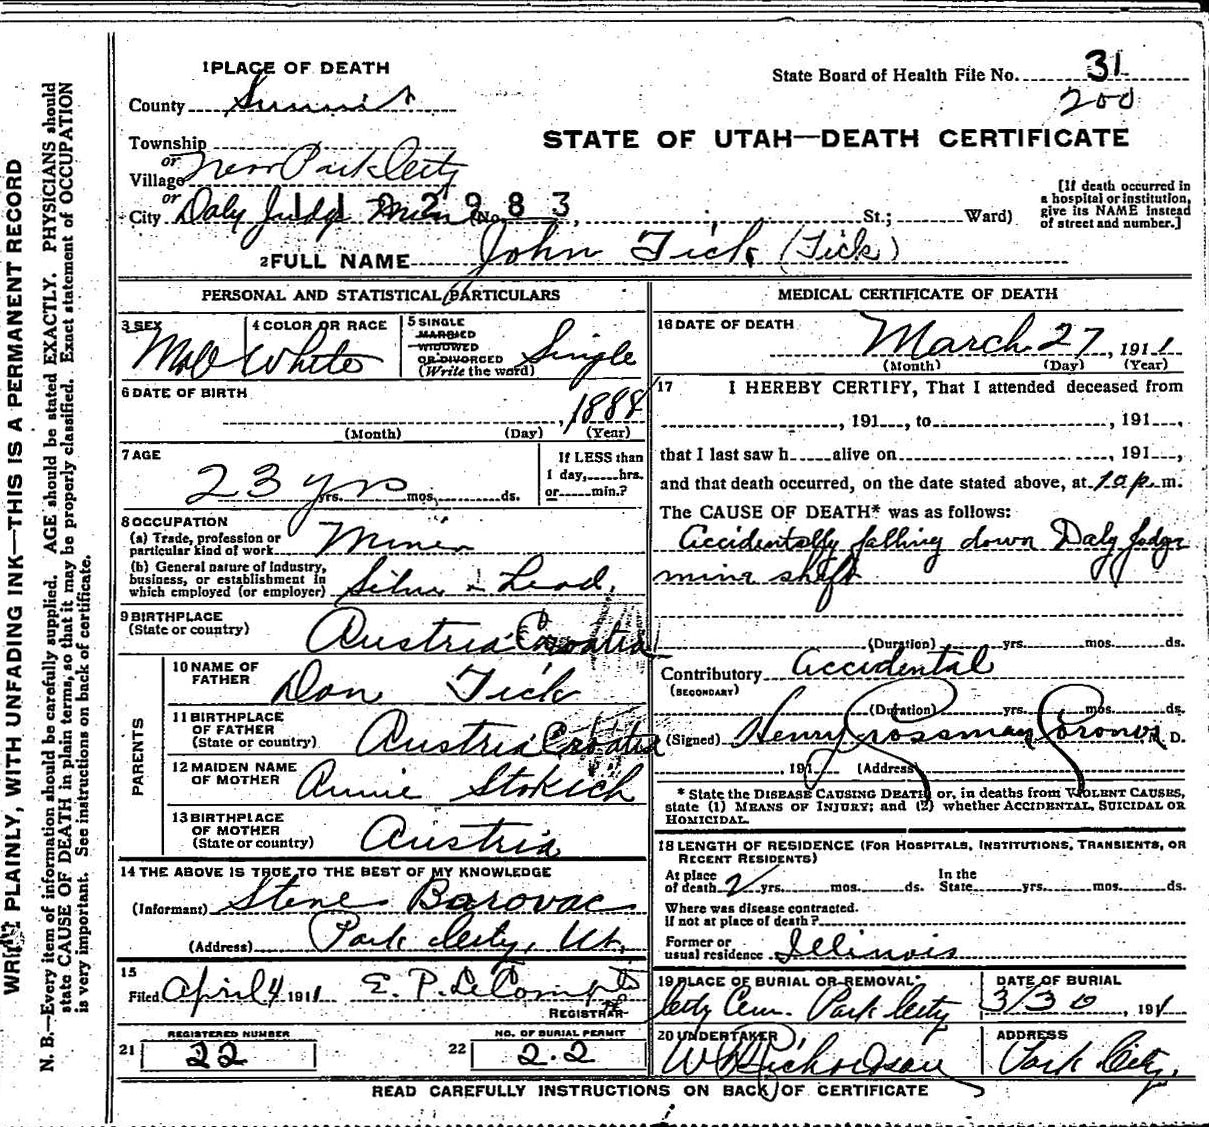 WRITE PLAINLY, WITH UNFADING INK—THIS IS A PERMANENT RECORD
N. B.—Every item of information should be carefully supplied. AGE should be stated EXACTLY. PHYSICIANS should
state CAUSE OF DEATH in plain terms, so that it may be properly classified. Exact statement of OCCUPATION
is very important. See instructions on back of certificate.
1 PLACE OF DEATH
County Summit
Township
or
Village Near Park City
or
City Daly Judge Mine (No.
11 02983
St.; Ward)
State Board of Health File No. 31
200
STATE OF UTAH—DEATH CERTIFICATE
[If death occurred in
a hospital or institution,
give its NAME instead
of street and number.]
2 FULL NAME John Tick (Tick)
PERSONAL AND STATISTICAL PARTICULARS
3 SEX Male
4 COLOR OR RACE White
5 SINGLE
MARRIED
WIDOWED
OR DIVORCED
(Write the word) Single
6 DATE OF BIRTH
, 1888
(Month) (Day) (Year)
7 AGE
23 yrs yrs. mos. ds.
If LESS than
1 day, hrs.
or min.?
8 OCCUPATION
(a) Trade, profession or
particular kind of work Miner
(b) General nature of industry,
business, or establishment in
which employed (or employer) Silver & Lead.
9 BIRTHPLACE
(State or country) Austria Croatia
PARENTS
10 NAME OF
FATHER Dan Tick
11 BIRTHPLACE
OF FATHER
(State or country) Austria Croatia
12 MAIDEN NAME
OF MOTHER Annie Stokich
13 BIRTHPLACE
OF MOTHER
(State or country) Austria
14 THE ABOVE IS TRUE TO THE BEST OF MY KNOWLEDGE
(Informant) Steve Barovac
(Address) Park City, Ut.
15
Filed April 4 1911 E. P. LeCompte
REGISTRAR
REGISTERED NUMBER
21 22
NO. OF BURIAL PERMIT
22 22
MEDICAL CERTIFICATE OF DEATH
16 DATE OF DEATH
March 27, 1911
(Month) (Day) (Year)
17 I HEREBY CERTIFY, That I attended deceased from
, 191 , to , 191 ,
that I last saw h alive on , 191 ,
and that death occurred, on the date stated above, at m.
The CAUSE OF DEATH* was as follows:
Accidentally falling down Daly Judge
mine shaft
(Duration) yrs. mos. ds.
Contributory Accidental
(SECONDARY)
(Duration) yrs. mos. ds.
(Signed) Henry Grossman Coroner M. D.
, 191 (Address)
* State the DISEASE CAUSING DEATH, or, in deaths from VIOLENT CAUSES,
state (1) MEANS OF INJURY; and (2) whether ACCIDENTAL, SUICIDAL OR
HOMICIDAL.
18 LENGTH OF RESIDENCE (FOR HOSPITALS, INSTITUTIONS, TRANSIENTS, OR
RECENT RESIDENTS)
At place
of death 2 yrs. mos. ds.
In the
State yrs. mos. ds.
Where was disease contracted.
if not at place of death?
Former or
usual residence Illinois
19 PLACE OF BURIAL OR REMOVAL
City Cem. Park City
DATE OF BURIAL
3/30, 1911
20 UNDERTAKER
W Richardson
ADDRESS
Park City.
READ CAREFULLY INSTRUCTIONS ON BACK OF CERTIFICATE